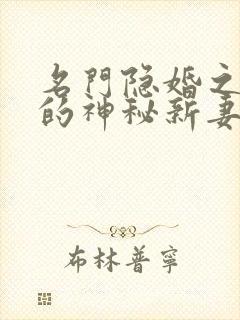 名門隐婚之
的神秘新妻
布林普寧